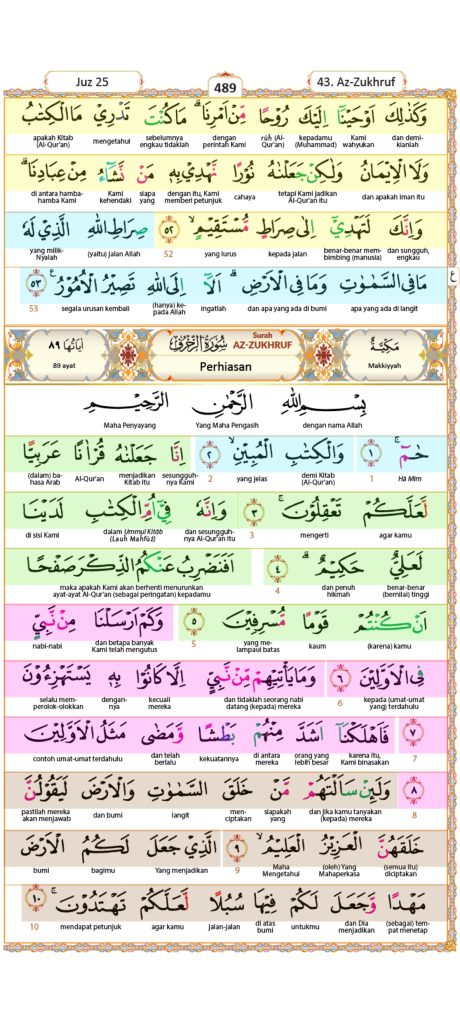 Juz 25 489 43. Az-Zukhruf
وَكَذٰلِكَ اَوْحَيْنَآ اِلَيْكَ رُوْحًا مِّنْ اَمْرِنَا ۗ مَا كُنْتَ تَدْرِيْ مَا الْكِتٰبُ
dan demi-kianlah Kami wahyukan kepadamu (Muhammad) rūḥ (Al-Qur'an) dengan perintah Kami sebelumnya engkau tidaklah mengetahui apakah Kitab (Al-Qur'an)
وَلَا الْاِيْمَانُ وَلٰكِنْ جَعَلْنٰهُ نُوْرًا نَّهْدِيْ بِهٖ مَنْ نَّشَاۤءُ مِنْ عِبَادِنَا ۗ
dan apakah iman itu tetapi Kami jadikan Al-Qur'an itu cahaya dengan itu, Kami memberi petunjuk siapa yang Kami kehendaki di antara hamba-hamba Kami
وَاِنَّكَ لَتَهْدِيْٓ اِلٰى صِرَاطٍ مُّسْتَقِيْمٍ ۙ ٥٢ صِرَاطِ اللّٰهِ الَّذِيْ لَهٗ
dan sungguh, engkau benar-benar mem-bimbing (manusia) kepada jalan yang lurus 52 (yaitu) jalan Allah yang milik-Nyalah
مَا فِى السَّمٰوٰتِ وَمَا فِى الْاَرْضِ ۗ اَلَآ اِلَى اللّٰهِ تَصِيْرُ الْاُمُوْرُ ࣖ ٥٣ ع
apa yang ada di langit dan apa yang ada di bumi ingatlah (hanya) ke-pada Allah segala urusan kembali 53
مَكِّيَّةٌ Surah AZ-ZUKHRUF سُوْرَةُ الزُّخْرُفِ اٰيَاتُهَا ٨٩
Makkiyyah Perhiasan 89 ayat
بِسْمِ اللّٰهِ الرَّحْمٰنِ الرَّحِيْمِ
dengan nama Allah Yang Maha Pengasih Maha Penyayang
حٰمۤ ۚ ١ وَالْكِتٰبِ الْمُبِيْنِ ۙ ٢ اِنَّا جَعَلْنٰهُ قُرْاٰنًا عَرَبِيًّا
Hā Mīm 1 demi Kitab (Al-Qur'an) yang jelas 2 sesungguh-nya Kami menjadikan Kitab itu Al-Qur'an (dalam) ba-hasa Arab
لَّعَلَّكُمْ تَعْقِلُوْنَ ۚ ٣ وَاِنَّهٗ فِيْٓ اُمِّ الْكِتٰبِ لَدَيْنَا
agar kamu mengerti 3 dan sesungguh-nya (Al-Qur'an) itu dalam (Ummul Kitāb) (Lauh Mahfūẓ) di sisi Kami
لَعَلِيٌّ حَكِيْمٌ ۗ ٤ اَفَنَضْرِبُ عَنْكُمُ الذِّكْرَ صَفْحًا
benar-benar (bernilai) tinggi dan penuh hikmah 4 maka apakah Kami akan berhenti menurunkan ayat-ayat Al-Qur'an (sebagai peringatan) kepadamu
اَنْ كُنْتُمْ قَوْمًا مُّسْرِفِيْنَ ٥ وَكَمْ اَرْسَلْنَا مِنْ نَّبِيٍّ
(karena) kamu kaum yang me-lampaui batas 5 dan betapa banyak Kami telah mengutus nabi-nabi
فِى الْاَوَّلِيْنَ ٦ وَمَا يَأْتِيْهِمْ مِّنْ نَّبِيٍّ اِلَّا كَانُوْا بِهٖ يَسْتَهْزِءُوْنَ
kepada (umat-umat yang) terdahulu 6 dan tidaklah seorang nabi datang (kepada) mereka kecuali mereka dengan-nya selalu mem-perolok-olokkan
٧ فَاَهْلَكْنَآ اَشَدَّ مِنْهُمْ بَطْشًا وَّمَضٰى مَثَلُ الْاَوَّلِيْنَ
7 karena itu, Kami binasakan orang yang lebih besar di antara mereka kekuatannya dan telah berlalu contoh umat-umat terdahulu
٨ وَلَىِٕنْ سَاَلْتَهُمْ مَّنْ خَلَقَ السَّمٰوٰتِ وَالْاَرْضَ لَيَقُوْلُنَّ
8 dan jika kamu tanyakan (kepada) mereka siapakah yang men-ciptakan langit dan bumi pastilah mereka akan menjawab
خَلَقَهُنَّ الْعَزِيْزُ الْعَلِيْمُ ۙ ٩ الَّذِيْ جَعَلَ لَكُمُ الْاَرْضَ
(semua itu) diciptakan (oleh) Yang Mahaperkasa Maha Mengetahui 9 Yang menjadikan bagimu bumi
مَهْدًا وَّجَعَلَ لَكُمْ فِيْهَا سُبُلًا لَّعَلَّكُمْ تَهْتَدُوْنَ ۚ ١٠
(sebagai) tem-pat menetap dan Dia menjadikan untukmu di atas bumi jalan-jalan agar kamu mendapat petunjuk 10